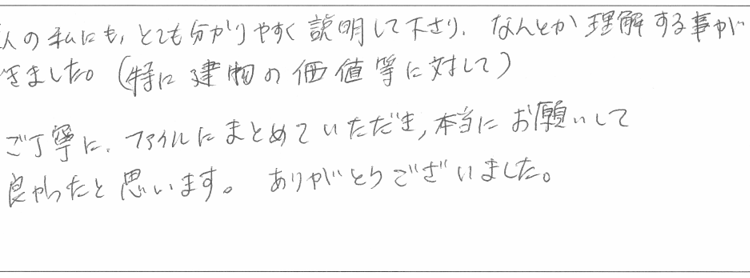 人の私にも、とても分かりやすく説明して下さり、なんとか理解する事が
きました。(特に建物の価値等に対して)
ご丁寧に、ファイルにまとめていただき、本当にお願いして
良かったと思います。ありがとうございました。